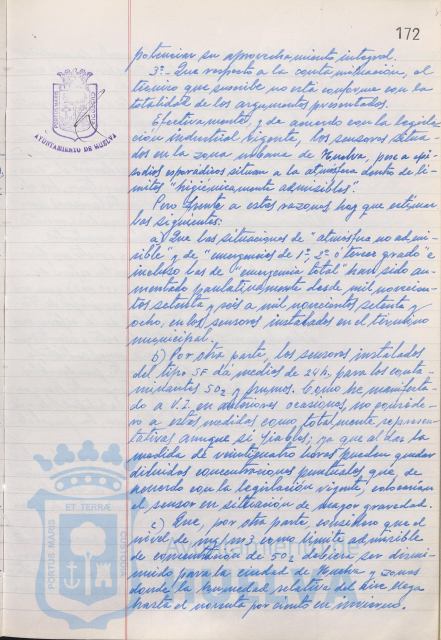 172
potenciar su aprovechamiento integral.
3º.- Que respecto a la contaminación, el
técnico que suscribe no está conforme con la
totalidad de los argumentos presentados.
Efectivamente y de acuerdo con la legisla-
ción industrial vigente, los sensores situa-
dos en la zona urbana de Huelva, pese a epi-
sodios esporádicos sitúan a la atmósfera dentro de lí-
mites "higiénicamente admisibles".
Pero frente a estas razones hay que estimar
las siguientes:
a) Que las situaciones de "atmósfera no admi-
sible" y de "emergencias de 1º, 2º o tercer grado" e
incluso las de "emergencia total" han sido au-
mentado paulatinamente desde mil novecien-
tos setenta y seis a mil novecientos setenta y
ocho, en los sensores instalados en el término
municipal.
b) Por otra parte, los sensores instalados
del tipo SF dan medios de 24 h. para los conta-
minantes SO2 y humos. Como he manifesta-
do a V.I. en anteriores ocasiones, no conside-
ro a estas medidas como totalmente represen-
tativas aunque sí fiables; ya que al dar la
medida de veinticuatro horas pueden quedar
diluidas concentraciones puntuales que, de
acuerdo con la legislación vigente, colocarían
el sensor en situación de mayor gravedad.
c) Que, por otra parte, considero que el
nivel de mg/m3 como límite admisible
de concentración de SO2 debiera ser dismi-
nuido para la ciudad de Huelva y zonas
donde la humedad relativa del aire llega
hasta el noventa por ciento en invierno.
AYUNTAMIENTO DE HUELVA
PORTUS MARIS
ET TERRÆ
CUSTODIA